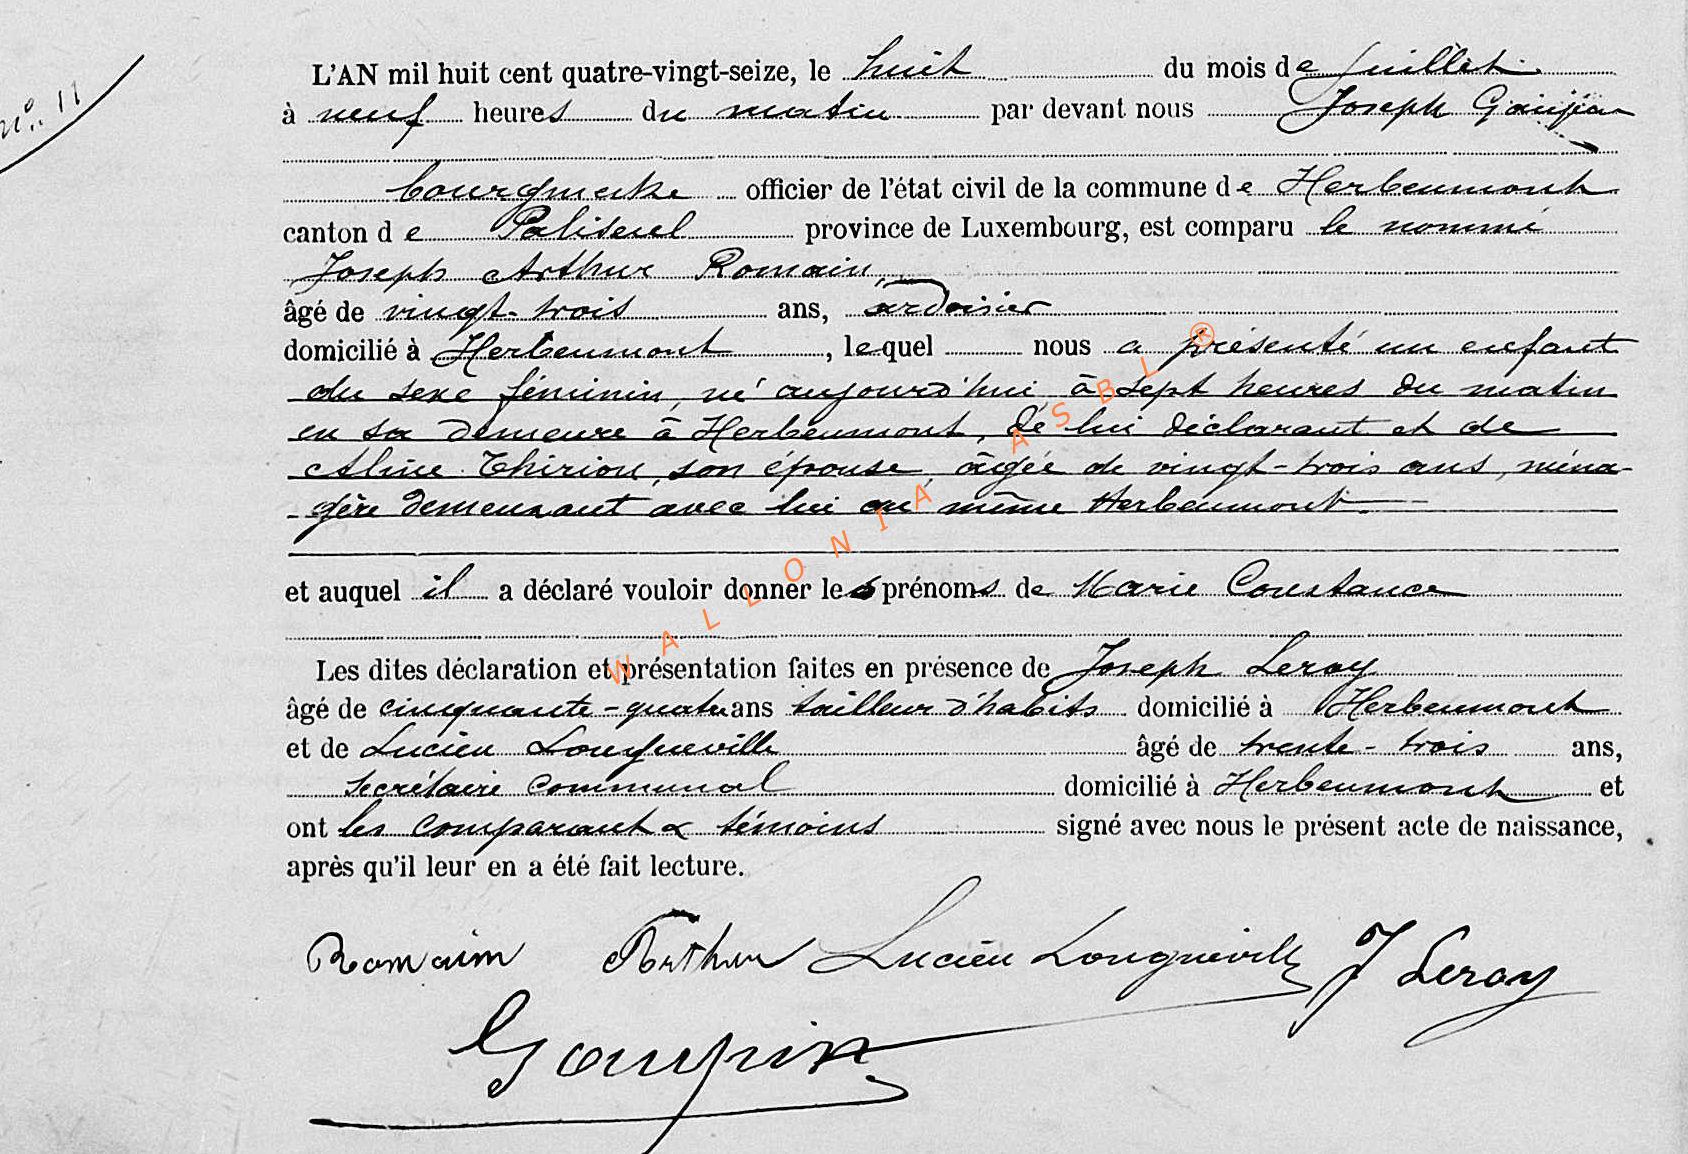 N° 11
L'AN mil huit cent quatre-vingt-seize, le huit du mois de juillet
à neuf heures du matin par devant nous Joseph
bourgmestre officier de l'état civil de la commune de Herbeumont
canton de Paliseul province de Luxembourg, est comparu le nommé
Joseph Arthur Romain,
âgé de vingt-trois ans, ardoisier
domicilié à Herbeumont, lequel nous a présenté un enfant
du sexe féminin, né aujourd'hui, à sept heures du matin
en sa demeure à Herbeumont, de lui déclarant et de
Aline Thirion, son épouse, âgée de vingt-trois ans, ména-
-gère demeurant avec lui au même Herbeumont.
et auquel il a déclaré vouloir donner les prénoms de Marie Constance
Les dites déclaration et présentation faites en présence de Joseph Leroy
âgé de cinquante-quatre ans tailleur d'habits domicilié à Herbeumont
et de Lucien Longueville âgé de trente-trois ans,
secrétaire communal domicilié à Herbeumont et
ont les comparant & témoins signé avec nous le présent acte de naissance,
après qu'il leur en a été fait lecture.
Romain Arthur Lucien Longueville J Leroy
WALLONIA ASBL ®